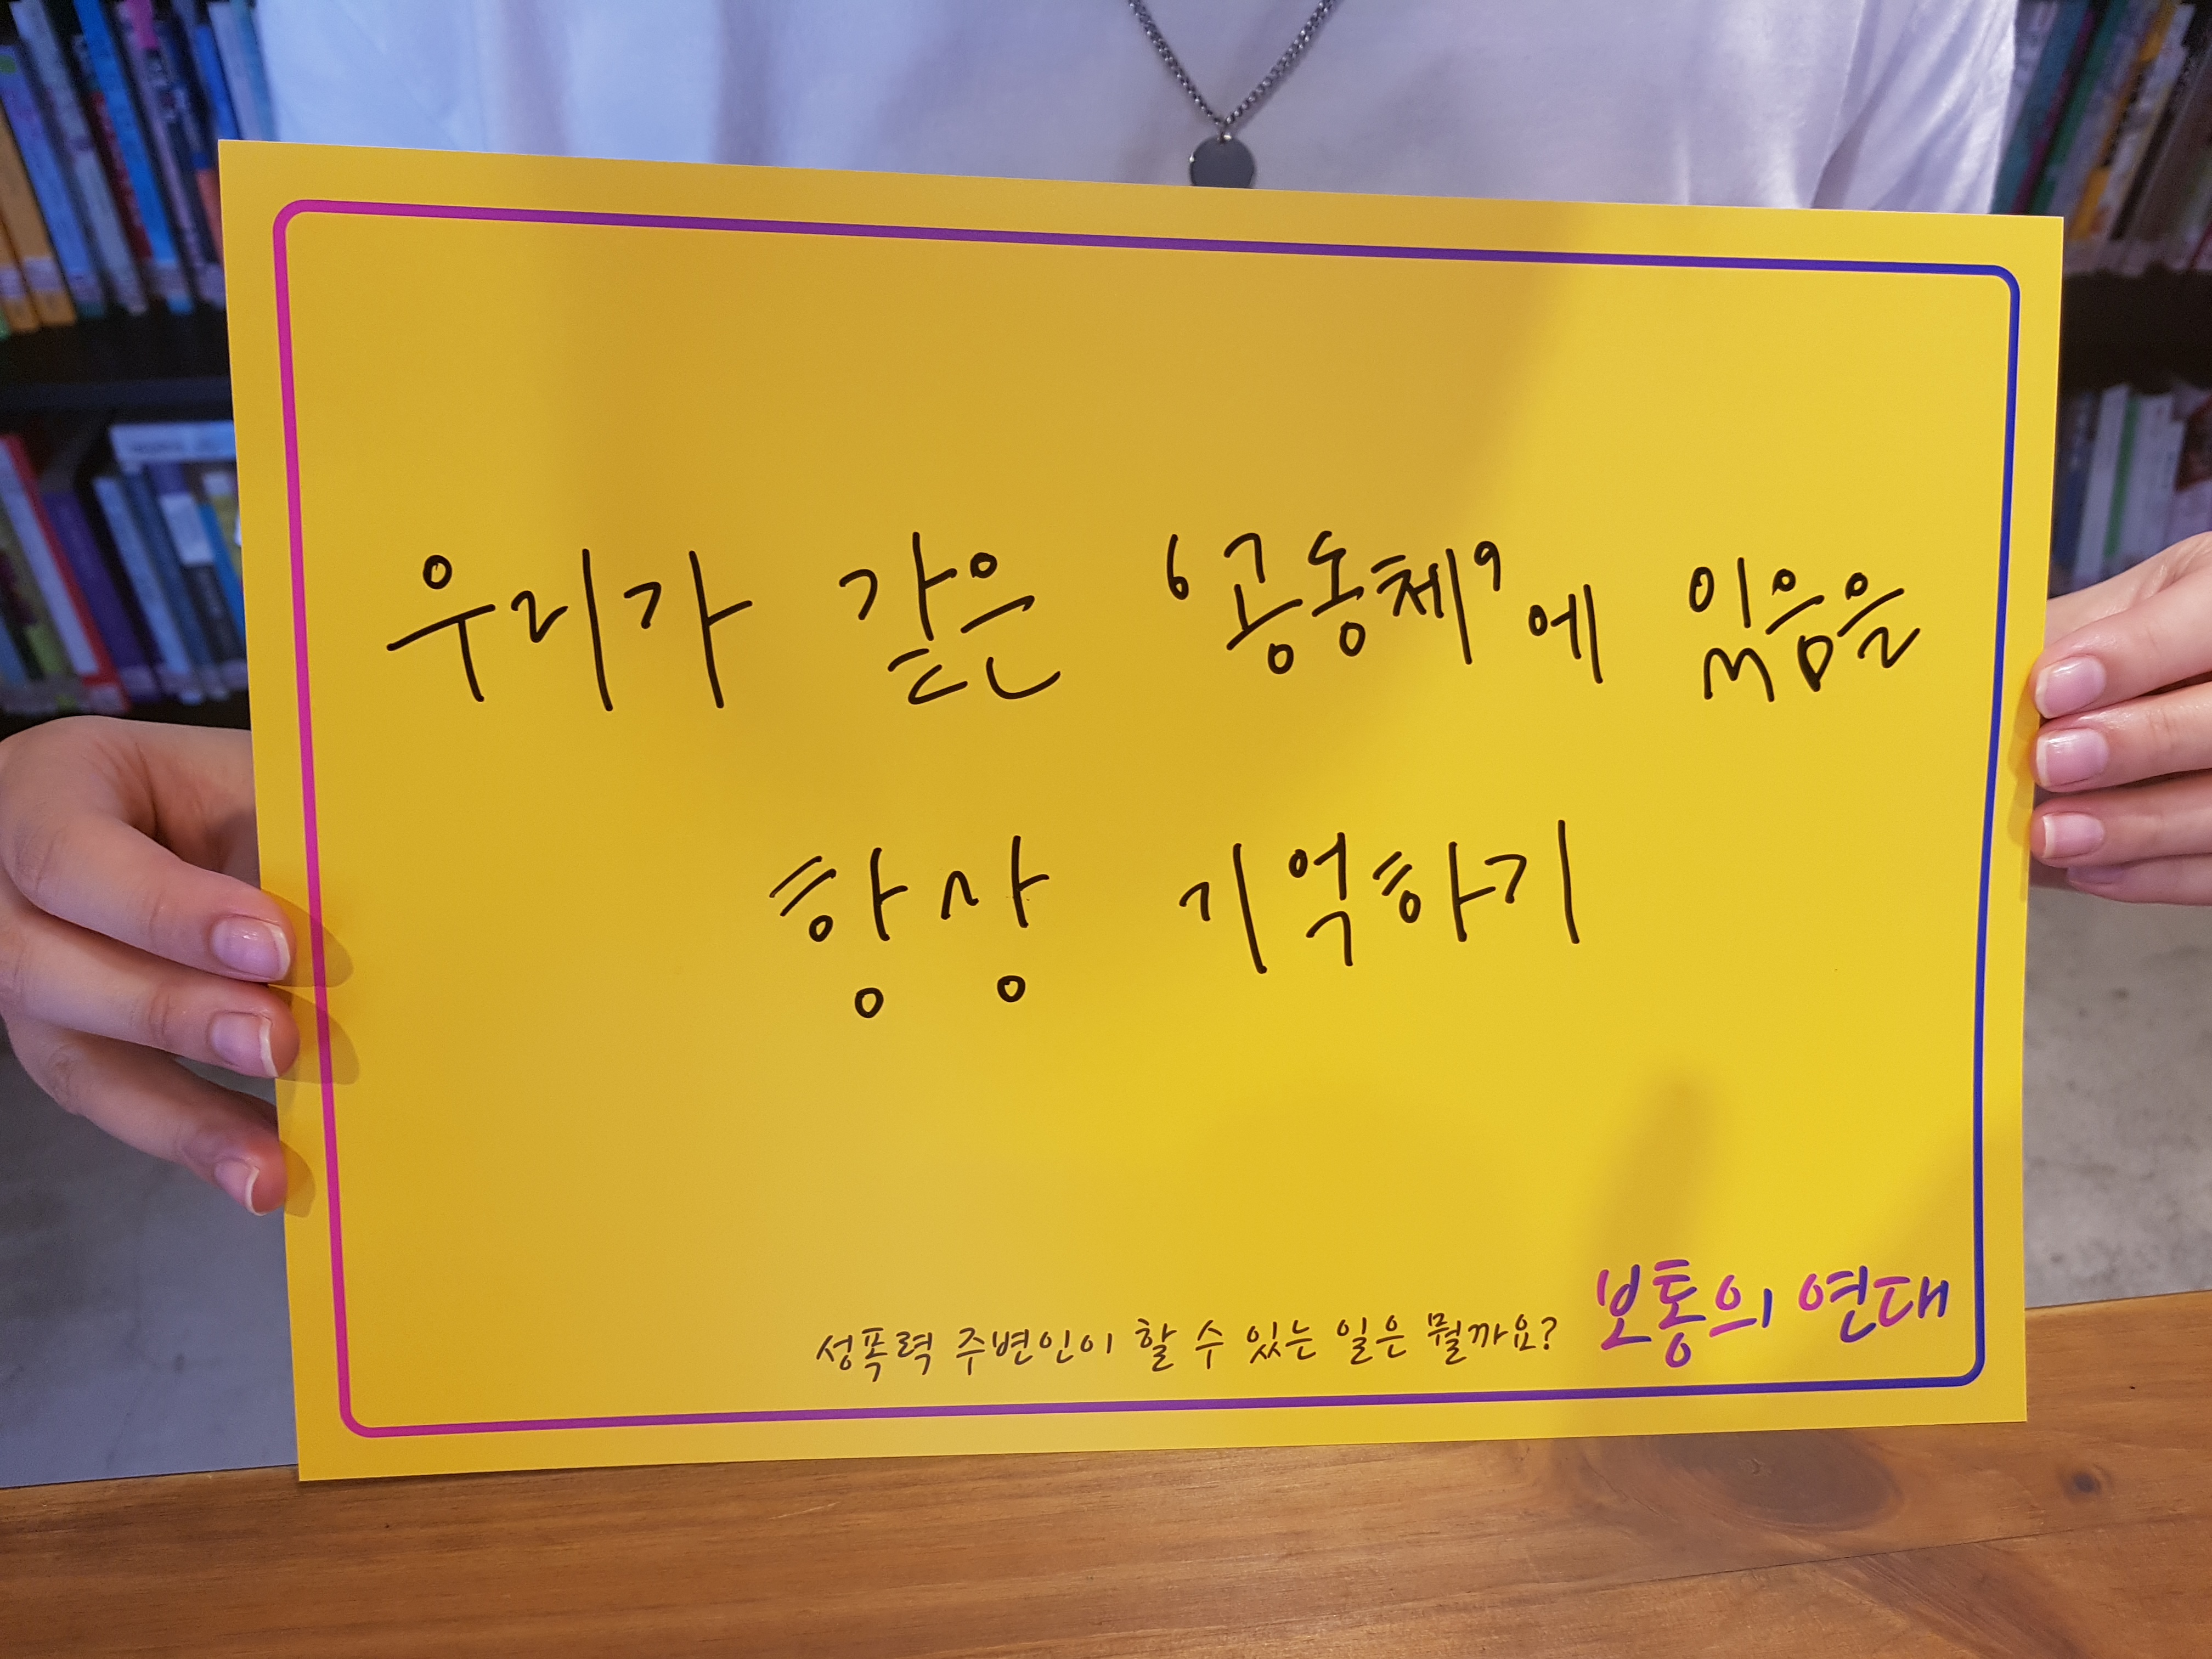 우리가 같은 '공동체'에 있음을
항상 기억하기
성폭력 주변인이 할 수 있는 일은 뭘까요? 보통의 연대